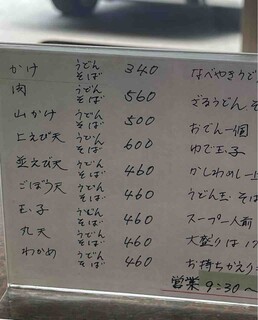 かけ うどん そば 340
肉 うどん そば 560
山かけ うどん そば 500
上えび天 うどん そば 600
並えび天 うどん そば 460
ごぼう天 うどん そば 460
玉子 うどん そば 460
丸天 うどん そば 460
わかめ うどん そば 460
なべやきうど
ざるうどん、そ
おでん一個
ゆで玉子
かしわめし
うどん玉 そば
スープ一人前
大盛りは
お持ちかえり
営業 9:30~